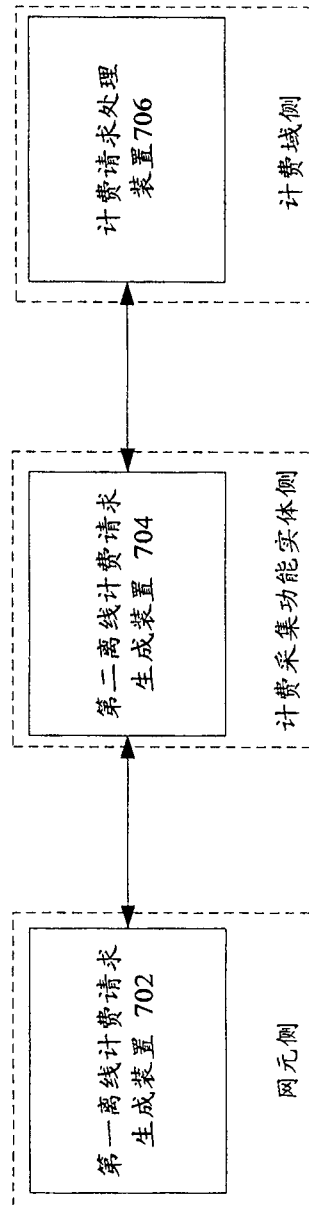 第一离线计费请求
生成装置 702
网元侧
第二离线计费请求
生成装置 704
计费采集功能实体侧
计费请求处理
装置706
计费域侧